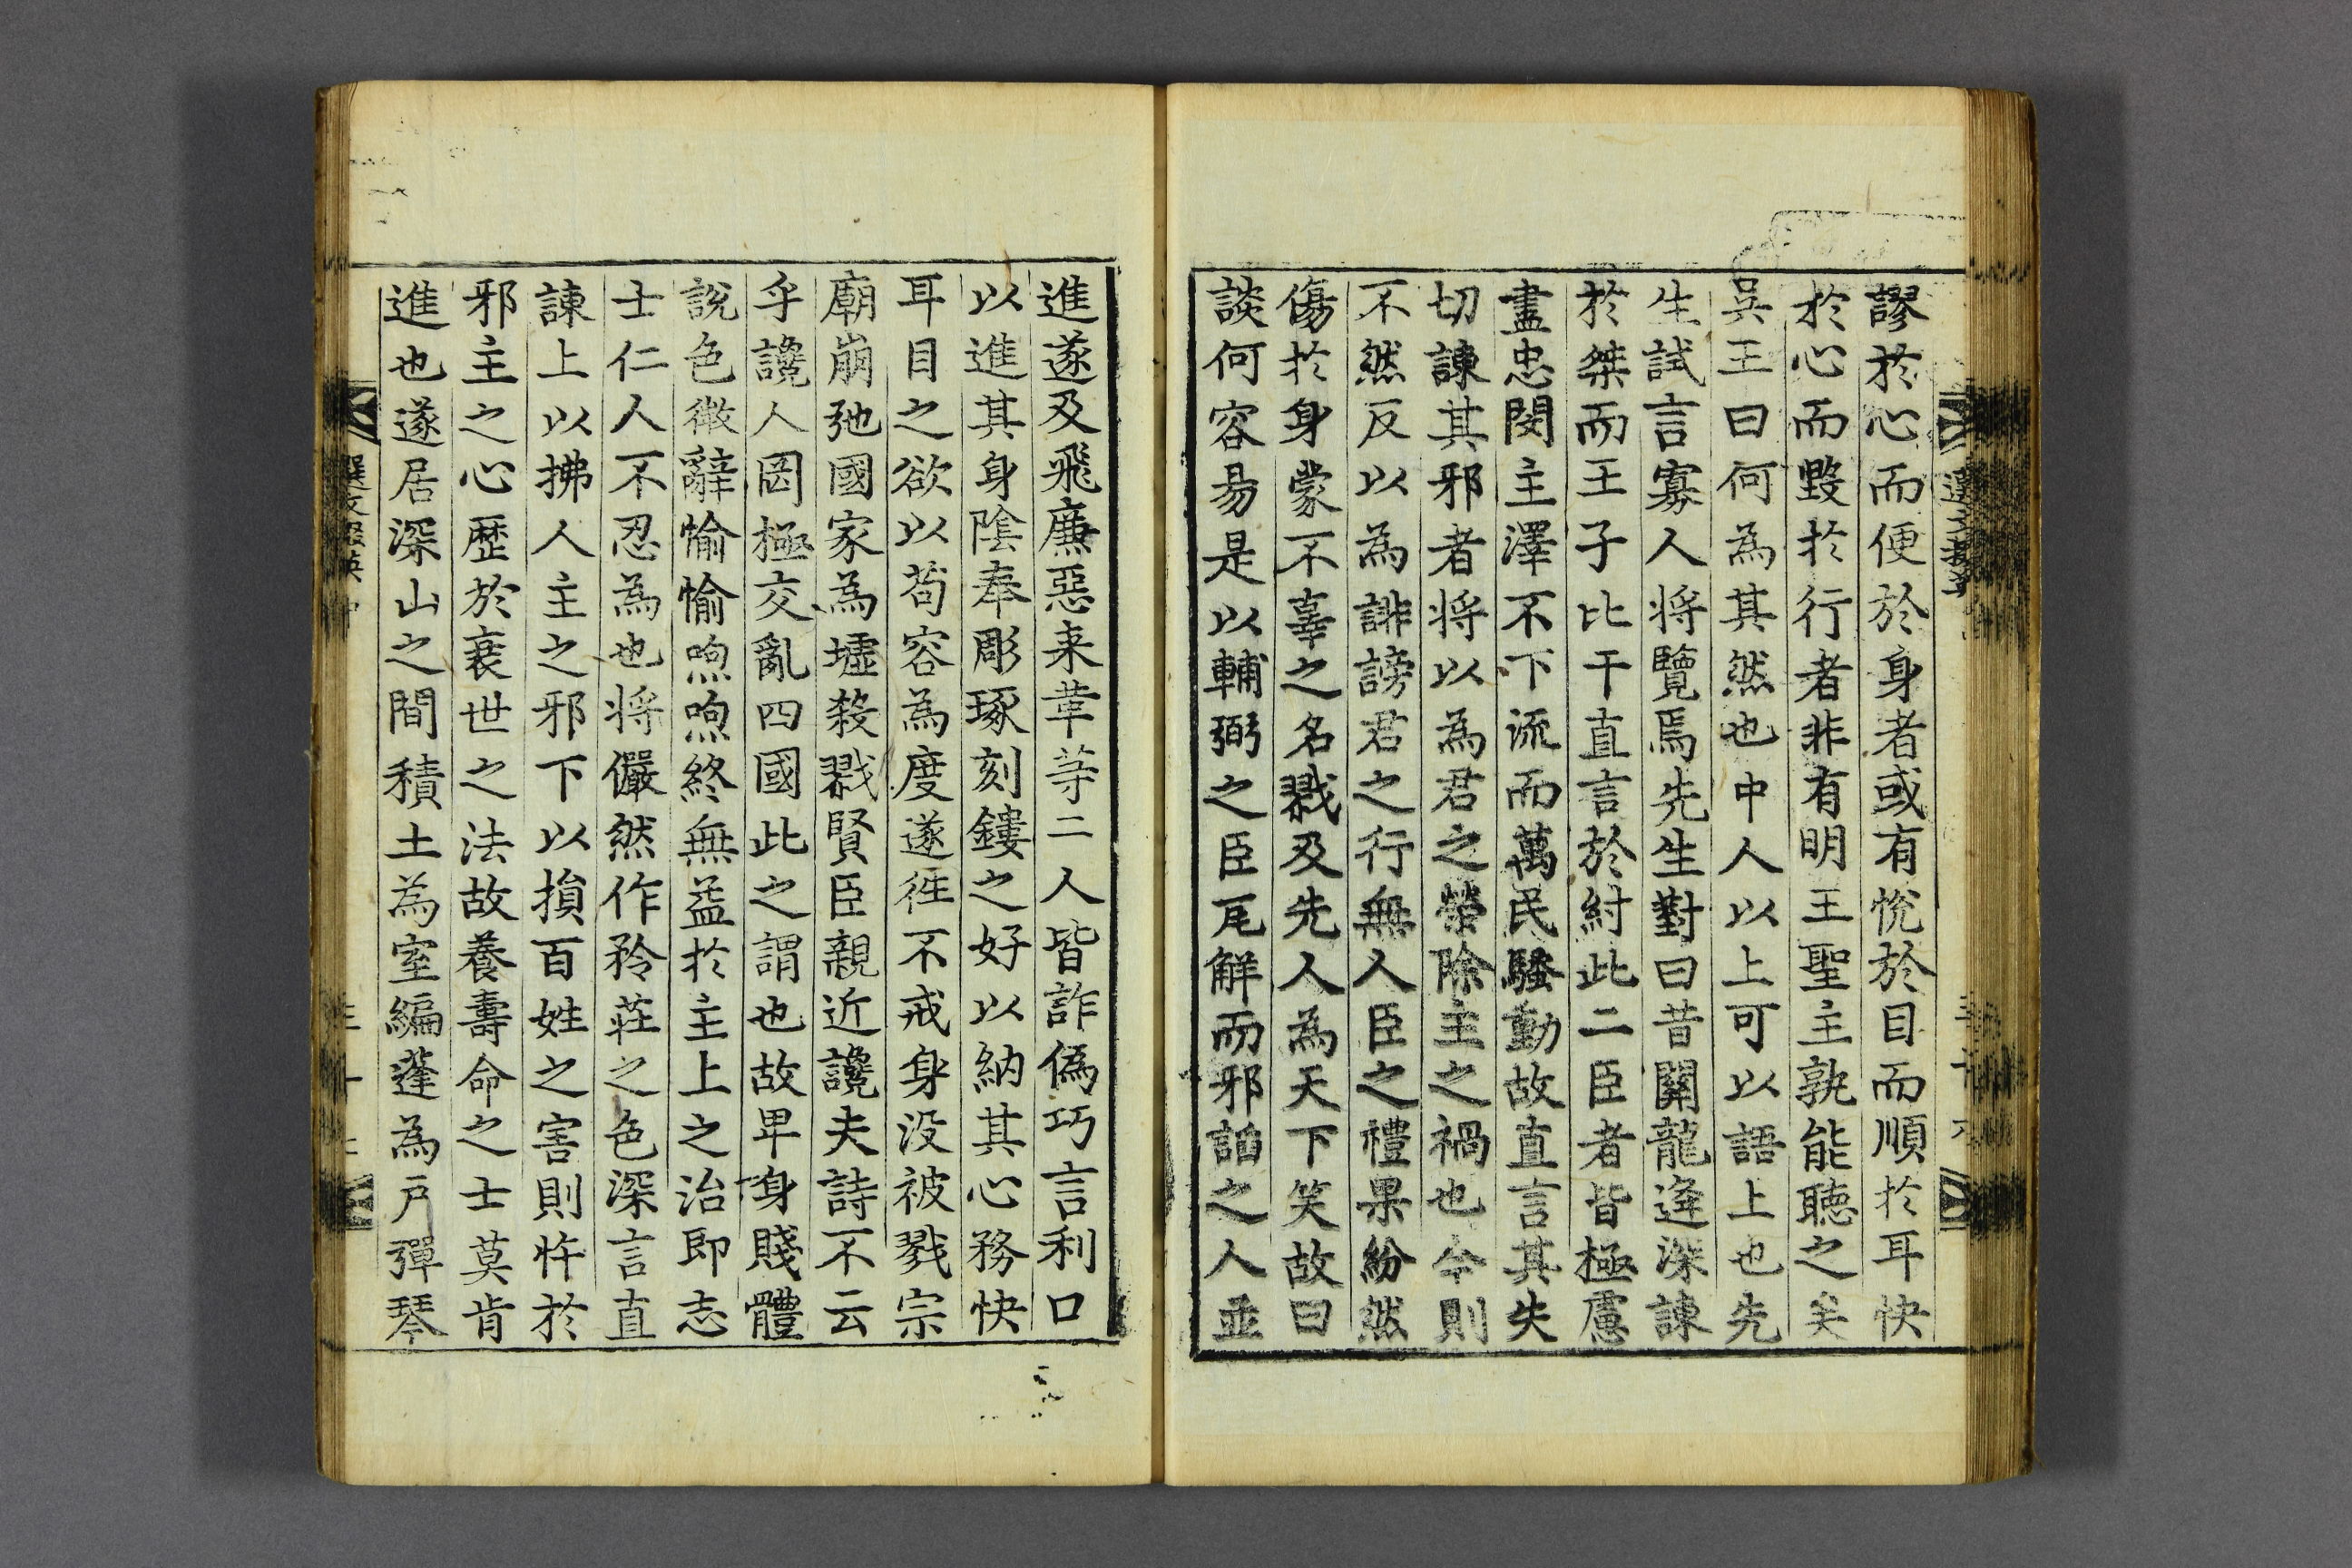 謬於心而便於身者或有悅於目而順於耳快
於心而毀於行者非有明王聖主孰能聽之矣
吳王曰何為其然也中人以上可以語上也先
生試言寡人將覽焉先生對曰昔關龍逄深諫
於桀而王子比干直言於紂此二臣者皆極慮
盡忠閔主澤不下流而萬民騷動故直言其失
切諫其邪者將以為君之榮除主之禍也今則
不然反以為誹謗君之行無人臣之禮果紛然
傷於身蒙不辜之名戮及先人為天下笑故曰
談何容易是以輔弼之臣瓦解而邪諂之人並
進遂及飛廉惡来革等二人皆詐偽巧言利口
以進其身陰奉彫琢刻鏤之好以納其心務快
耳目之欲以苟容為度遂徃不戒身没被戮宗
廟崩弛國家為墟殺戮賢臣親近讒夫詩不云
乎讒人罔極交亂四國此之謂也故卑身賤體
說色微辭愉愉喣喣終無益於主上之治即志
士仁人不忍為也将儼然作矜莊之色深言直
諫上以拂人主之邪下以損百姓之害則忤於
邪主之心歷於衰世之法故養壽命之士莫肯
進也遂居深山之間積土為室編蓬為戸彈琴